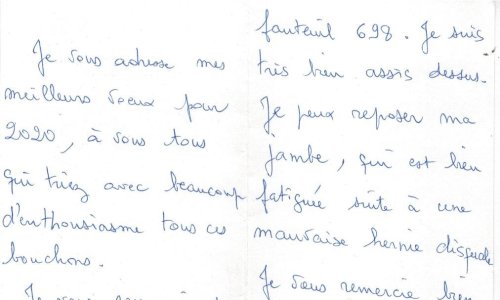 Je vous adresse mes
meilleurs voeux pour
2020, à vous tous
qui triez avec beaucoup
d'enthousiasme tous ces
bouchons.
fauteuil 698. Je suis
très bien assis dessus.
Je peux reposer ma
jambe, qui est bien
fatiguée suite à une
mauvaise hernie discale
Je vous remercie bien